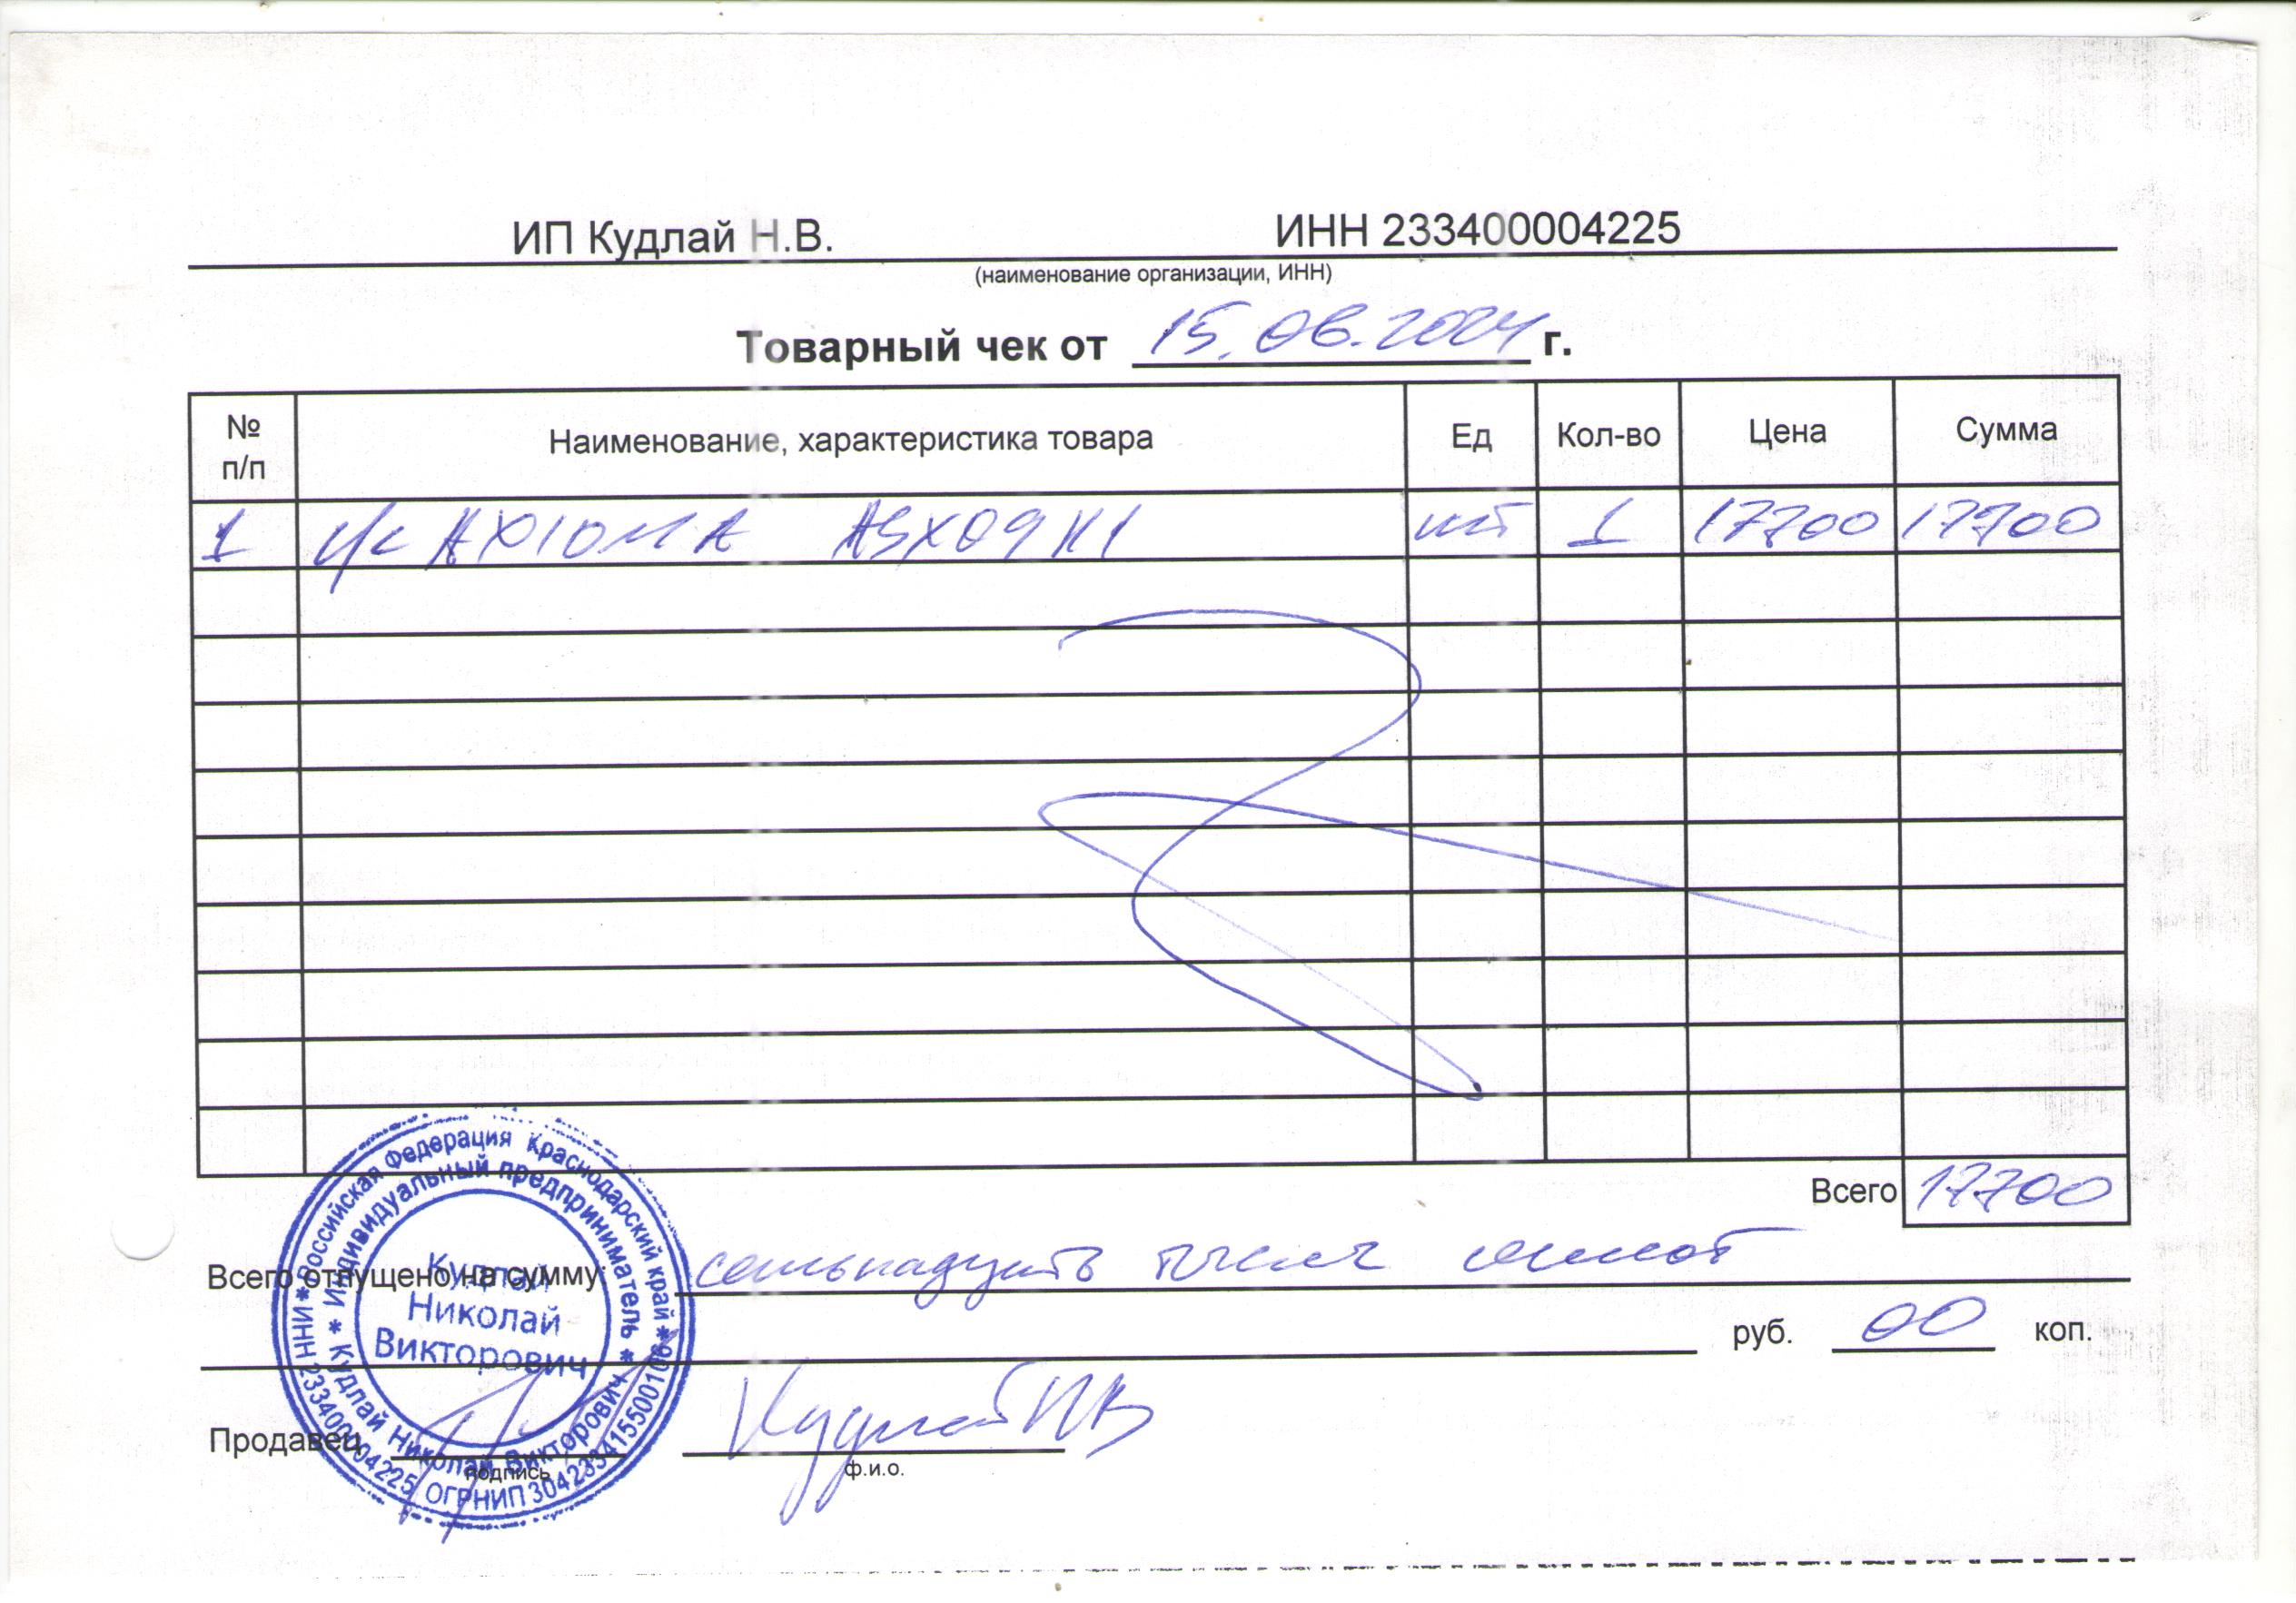 ИП Кудлай Н.В. ИНН 233400004225
(наименование организации, ИНН)
Товарный чек от 15.06.2024 г.
№ п/п Наименование, характеристика товара Ед Кол-во Цена Сумма
1 с/с AXIOMA ASX09H1 шт 1 17700 17700
Всего 17700
Всего отпущено на сумму: семьнадцать тысяч семьсот
руб. 00 коп.
Продавец Кудлай НВ
подпись ф.и.о.
Российская Федерация Краснодарский край
Индивидуальный предприниматель
Кудлай
Николай
Викторович
Кудлай Николай Викторович
ИНН 233400004225 ОГРНИП